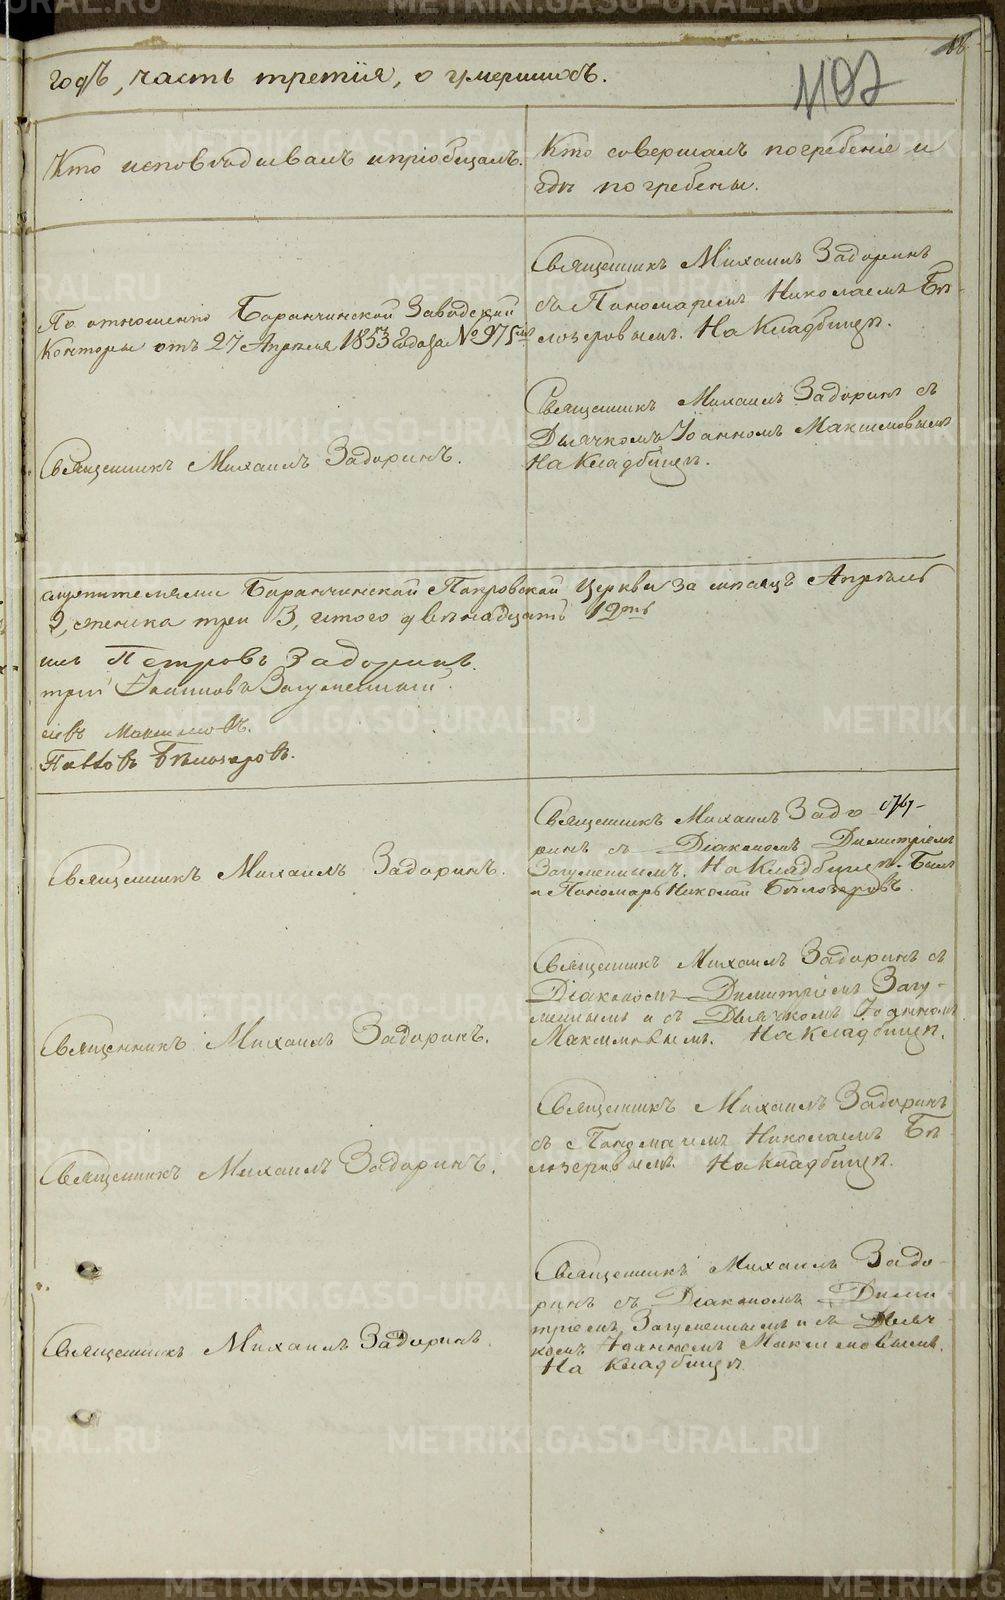 годъ, часть третія, о умершихъ.
1107
Кто исповѣдывалъ и пріобщалъ.
Кто совершалъ погребеніе и
гдѣ погребены.
По отношенію Баранчинской Заводской
Конторы отъ 27 Апрѣля 1853 года за № 975мъ
Священникъ Михаилъ Задоринъ
съ Пономаремъ Николаемъ Бѣ-
лозеровымъ. На Кладбищѣ.
Священникъ Михаилъ Задоринъ.
Священникъ Михаилъ Задоринъ съ
Дьячкомъ Іоанномъ Максимовымъ
На Кладбищѣ.
Баранчинской Покровской Церкви за мѣсяцъ Апрѣль
9, женска три 3, итого двѣнадцать 12ть
Петровъ Задоринъ.
Іоанновъ Загуменный.
Максимовъ.
Павловъ Бѣлозеровъ.
Священникъ Михаилъ Задоринъ.
Священникъ Михаилъ Задо-
ринъ съ Діакономъ Димитріемъ
Загуменнымъ. На Кладбищѣ. Былъ
и Пономарь Николай Бѣлозеровъ.
Священникъ Михаилъ Задоринъ.
Священникъ Михаилъ Задоринъ съ
Діакономъ Димитріемъ Загу-
меннымъ и съ Дьячкомъ Іоанномъ
Максимовымъ. На Кладбищѣ.
Священникъ Михаилъ Задоринъ.
Священникъ Михаилъ Задоринъ
съ Николаемъ Бѣ-
лозеровымъ. На Кладбищѣ.
Священникъ Михаилъ Задоринъ
Священникъ Михаилъ Задо-
ринъ съ Діакономъ Дими-
тріемъ Загуменнымъ и съ Дьяч-
комъ Іоанномъ Максимовымъ.
На Кладбищѣ.
METRIKI.GASO-URAL.RU